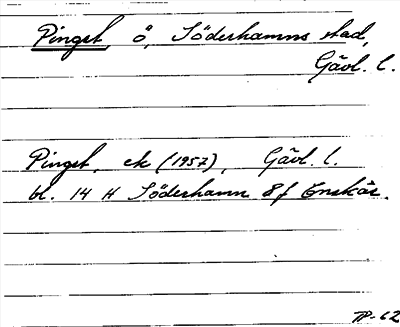 Pingst, ö, Söderhamns stad,
Gävl. l.
Pingst, ek (1957), Gävl. l.
bl. 14 H Söderhamn 8 f Enskär.
PP-62